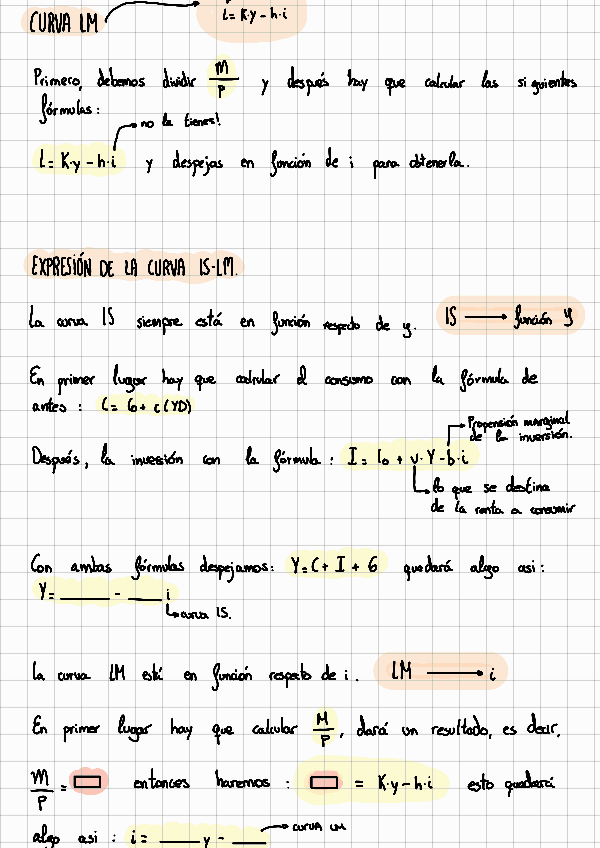 L= K·y - h·i
CURVA LM
Primero, debemos dividir M/P y después hay que calcular las siguientes
fórmulas:
no la tienes!
L= K·y - h·i y despejas en función de i para obtenerla.
EXPRESIÓN DE LA CURVA IS-LM.
La curva IS siempre está en función respecto de y. IS → función y
En primer lugar hay que calcular el consumo con la fórmula de
antes : C= C0 + c(YD)
Propensión marginal
de la inversión.
Después, la inversión con la fórmula : I= I0 + v·Y - b·i
lo que se destina
de la renta a consumir
Con ambas fórmulas despejamos: Y= C+ I + G quedará algo asi :
Y= ____ - ____ i
curva IS.
La curva LM está en función respecto de i. LM → i
En primer lugar hay que calcular M/P, dará un resultado, es decir,
M/P = ▭ entonces haremos : ▭ = K·y - h·i esto quedará
curva LM
algo asi : i= ____ y - ____